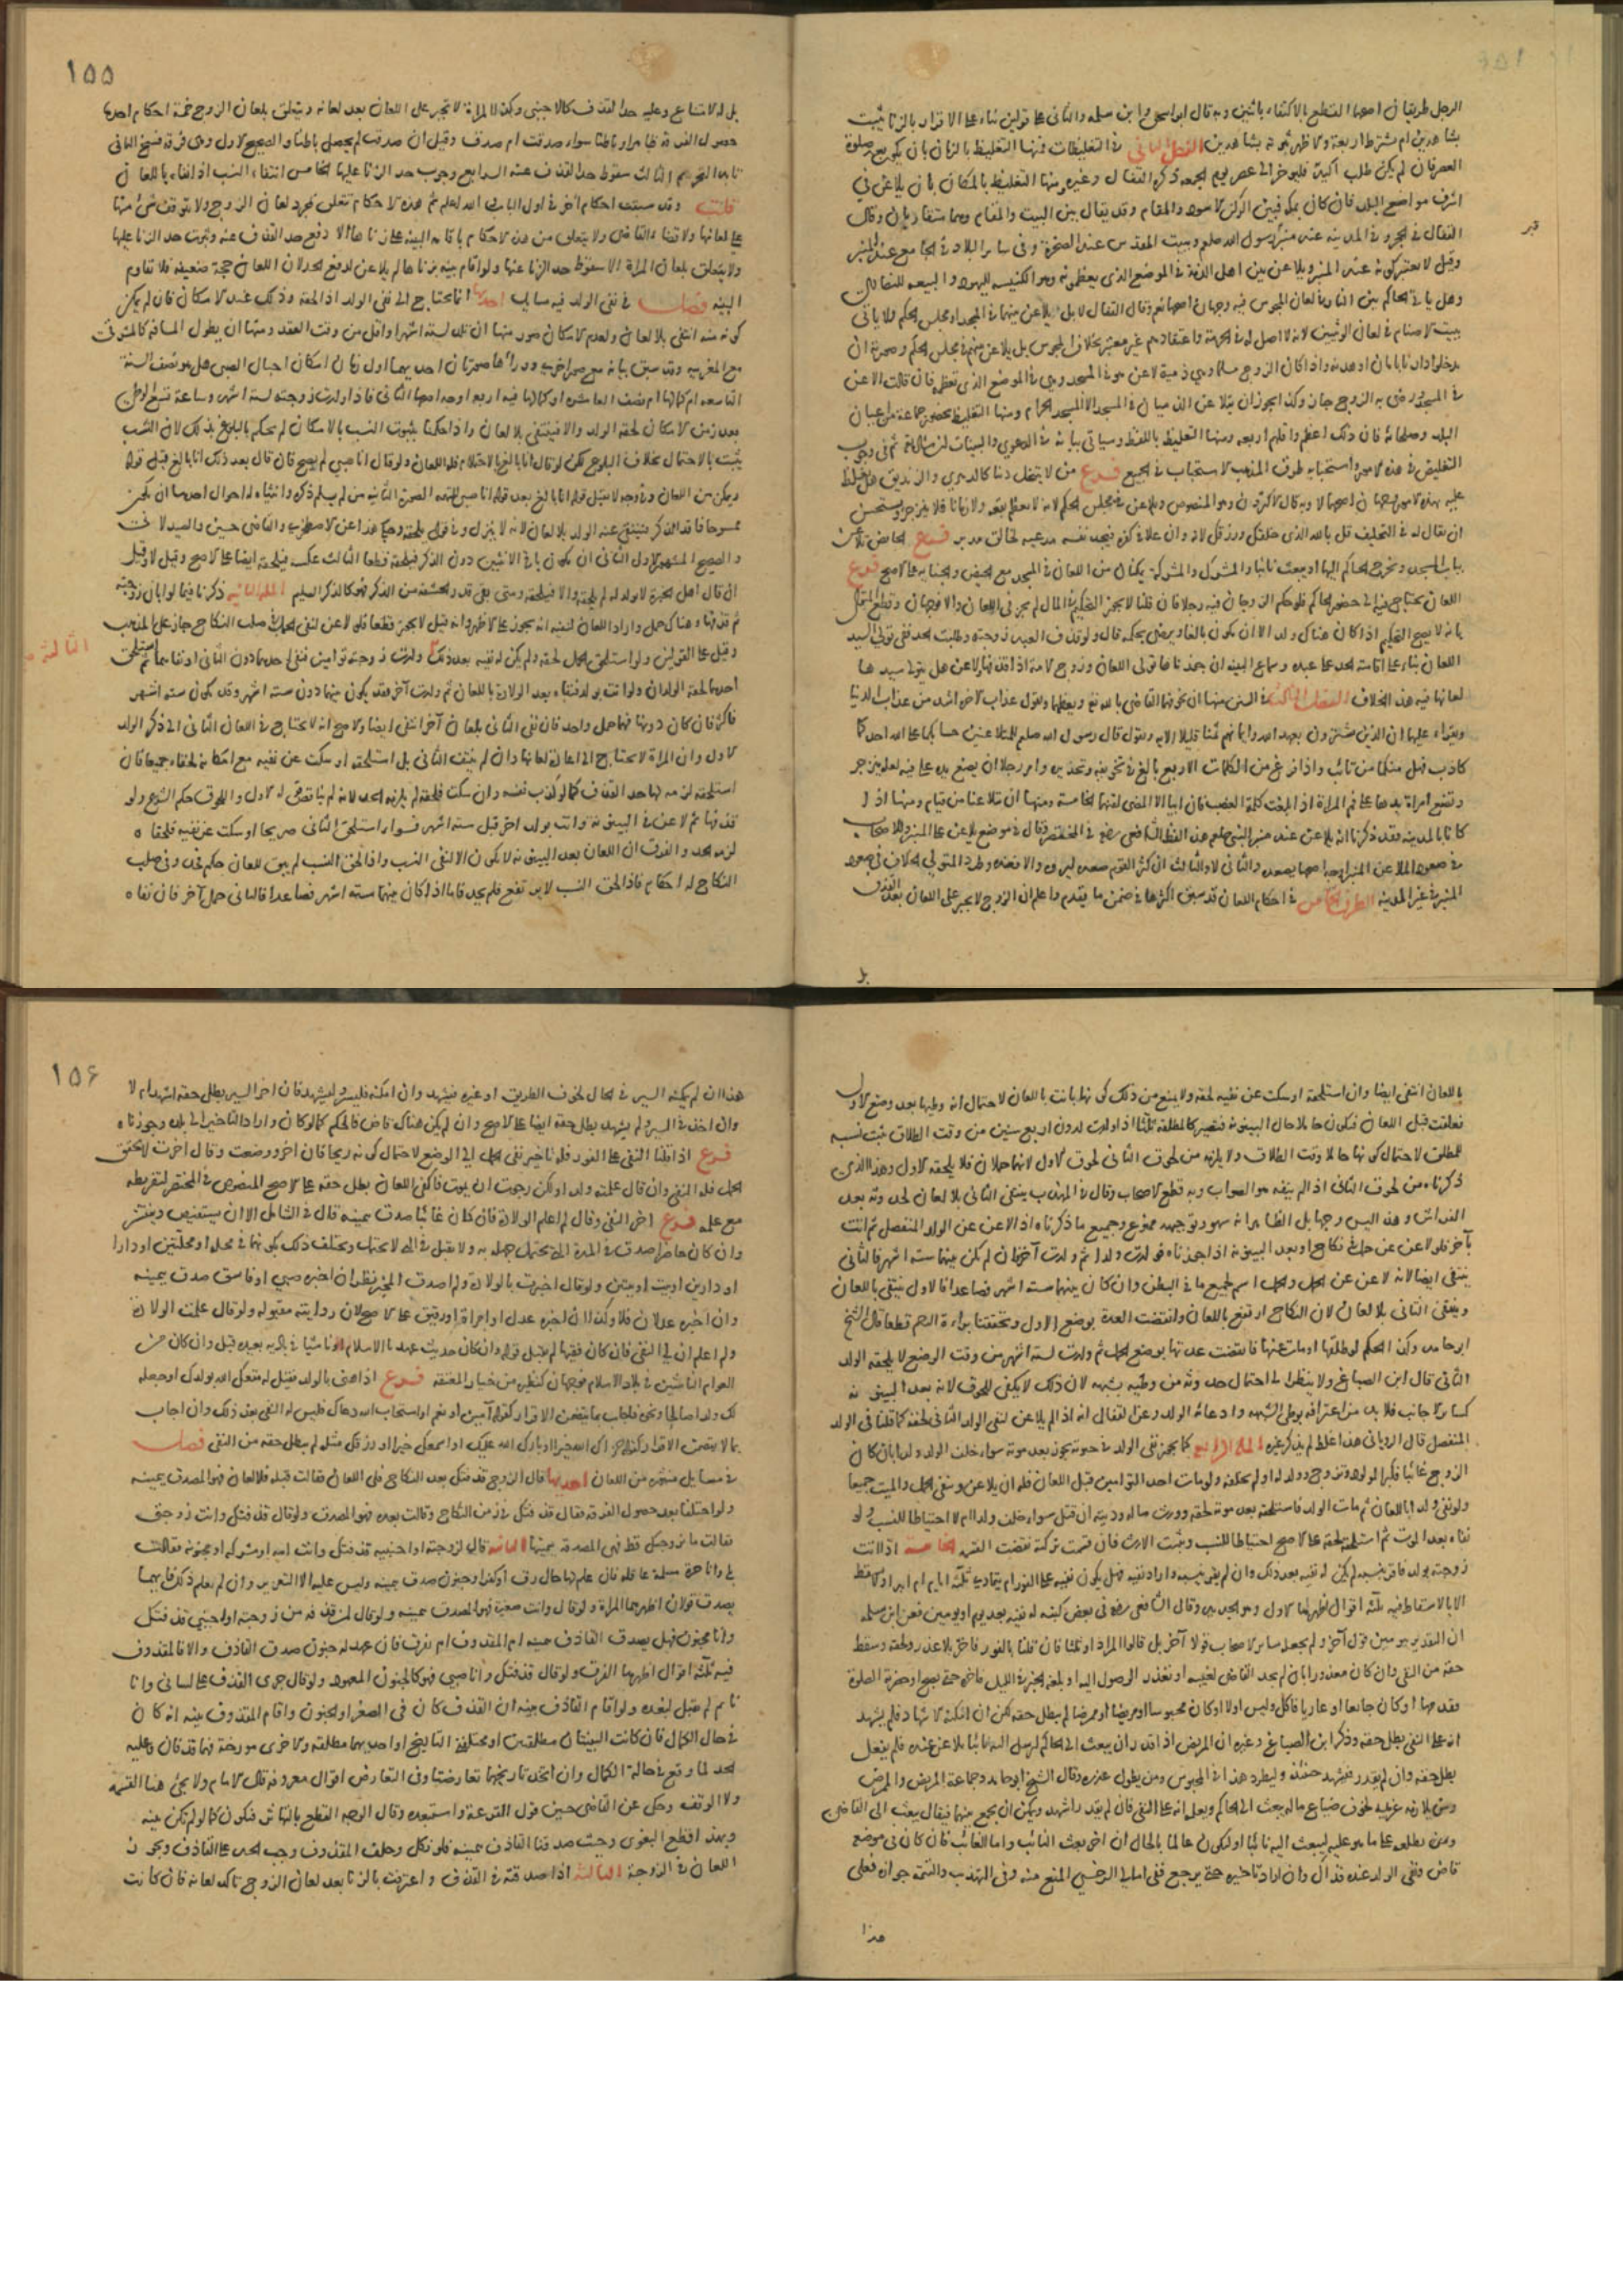 الرجل طريقان اصحهما القطع بالاكتفاء باثنين وبه قال ابو اسحق وابن سلمه والثانى على قولين بناء على الاقرار بالزنا يثبت
بشاهدين ام يشترط اربعة والاظهر ثبوته بشاهدين الفصل الثانى فى التغليظات فمنها التغليظ بالزمان بان يكون بعد صلوة
العصر فان لم يكن طلب اكيد فليوخر الى عصر يوم الجمعه ذكره القفال وغيره ومنها التغليظ بالمكان بان يلاعن فى
اشرف مواضع البلد فان كان بمكه فبين الركن الاسود والمقام وقد يقال بين البيت والمقام وهما متقاربان وقال
القفال فى الحجر وفى المدينه عند منبر رسول الله صلعم وببيت المقدس عند الصخرة وفى سائر البلاد فى الجامع عند المنبر
وقيل لا يعتبر كونه عند المنبر ويلاعن بين اهل الذمة فى الموضع الذى يعظمونه وهو الكنيسه لليهود والبيعه للنصارى
وهل ياتى الحاكم بيت النار فى لعان المجوس فيه وجهان اصحهما نعم وقال القفال لا بل يلاعن بينهما فى المسجد او مجلس الحكم ولا ياتى
بيت الاصنام فى لعان الوثنيين لانه لا اصل له فى الحرمة واعتقادهم غير معتبر بخلاف المجوس بل يلاعن بينهم فى مجلس الحكم وصورته ان
يدخلوا دارنا بامان او هدنه واذا كان الزوج مسلما وهى ذمية لاعن هو فى المسجد وهى فى الموضع الذى تعظمه فان قالت الاعن
فى المسجد ورضى به الزوج جاز وكذا يجوز ان يتلاعن الذميان فى المسجد الا المسجد الحرام ومنها التغليظ بحضور جماعة من اعيان
البلد وصلحائه فان ذلك اعظم واقلهم اربعه ومنها التغليظ باللفظ وسياتى بيانه فى الدعوى والبينات ان شاء الله ثم فى وجوب
التغليظ فى هذه الامور واستحبابه طرق المذهب الاستحباب فى الجميع فرع من لا ينتحل دينا كالدهرى والزنديق هل يغلظ
عليه بهذه الامور وجهان اصحهما لا وبه قال الاكثرون وهو المنصوص ويلاعن فى مجلس الحكم لانه لا يعظم بقعه ولا زمانا فلا ينزجر ويستحسن
ان يقال له فى التحليف قل بالله الذى خلقك ورزقك لانه وان غلا فى كفره فيجد نفسه مذعنه لخالق مدبر فرع الحائض تلاعن
بباب المسجد ويخرج الحاكم اليها او يبعث نائبا والمشرك والمشركة يمكنان من اللعان فى المسجد مع الحيض والجنابه على الاصح فرع
اللعان يحتاج فيه الى حضور الحاكم فلو حكم الزوجان فيه رجلا فان قلنا لا يجوز التحكيم فى المال لم يجز فى اللعان والا فوجهان وقطع المتولى
بانه لا يصح التحكيم اذا كان هناك ولد الا ان يكون بالغا ويرضى بحكمه قال ولو قذف العبد زوجته وطلبت الحد ففى تولى السيد
اللعان بناء على اقامته الحد على عبده وسماع البينه ان جوزناها تولى اللعان وزوج الامة اذا قذفها ولاعن هل يتولى سيدها
لعانها فيه هذا الخلاف الفصل الثالث فى السنن منها ان يخوفهما القاضى بالله تعالى ويعظهما ويقول عذاب الاخرة اشد من عذاب الدنيا
ويقراء عليهما ان الذين يشترون بعهد الله وايمانهم ثمنا قليلا الايه ويقول قال رسول الله صلعم للمتلاعنين حسابكما على الله احدكما
كاذب فهل منكما من تائب واذا فرغ من الكلمات الاربع بالغ فى تخويفه وتحذيره وامر رجلا ان يضع يده على فيه لعله ينزجر
وتضع امراة يدها على فم المراة اذا بلغت كلمة الغضب فان ابيا الا المضى لقنهما الخامسة ومنها ان يتلاعنا من قيام ومنها اذا
كانا بالمدينه فقد ذكرنا انه يلاعن عند منبر النبى صلعم هذا لفظ الشافعى رضه فى المختصر وقال فى موضع يلاعن على المنبر وللاصحاب
فى صعود الملاعن المنبر اوجه اصحها يصعد والثانى لا والثالث ان كثر القوم صعد ليروه والا فعنده وطرد المتولى الخلاف فى صعود
المنبر فى غير المدينه الطرف الخامس فى احكام اللعان قد سبق اكثرها فى ضمن ما تقدم واعلم ان الزوج لا يجبر على اللعان بعد القذف
بل
١٥٥
بل له الامتناع وعليه حد القذف كالاجنبى وكذا المراة لا تجبر على اللعان بعد لعانه ويتعلق بلعان الزوج خمسة احكام احدها
حصول الفرقة ظاهرا وباطنا سواء صدقت ام صدق وقيل ان صدقت لم يحصل باطنا والصحيح الاول وهى فرقة فسخ الثانى
تابد التحريم الثالث سقوط حد القذف عنه الرابع وجوب حد الزنا عليها الخامس انتفاء النسب اذا نفاه باللعان
قلت وقد سبقت احكام اخر فى اول الباب والله اعلم ثم هذه الاحكام تتعلق بمجرد لعان الزوج ولا يتوقف شئ منها
على لعانها ولا قضاء القاضى ولا يتعلق من هذه الاحكام باقامة البينه على زناها الا دفع حد القذف عنه وثبوت حد الزنا عليها
ولا يتعلق بلعان المراة الا سقوط حد الزنا عنها ولو اقام بينه بزناها لم يلاعن لدفع الحد لان اللعان حجة ضعيفه فلا تقاوم
البينه فصل فى نفى الولد فيه مسايل احدها انما يحتاج الى نفى الولد اذا لحقه وذلك عند الامكان فان لم يمكن
كونه منه انتفى بلا لعان ولعدم الامكان صور منها ان تلد لسته اشهر او اقل من وقت العقد ومنها ان يطول المسافة كالمشرقى
مع المغربيه وقد سبق بيانه مع صور اخر ووراءها صورتان احديهما اول زمان امكان احبال الصبى هل هو نصف السنة
التاسعه ام كمالها ام نصف العاشره او كمالها فيه اربعة اوجه اصحها الثانى فاذا ولدت زوجته لستة اشهر وساعة تسع الوطى
بعد زمن الامكان لحقه الولد والا فينتفى بلا لعان واذا حكمنا بثبوت النسب بالامكان لم نحكم بالبلوغ بذلك لان النسب
يثبت بالاحتمال بخلاف البلوغ لكن لو قال انا بالغ بالاحتلام فله اللعان ولو قال انا صبى لم يصح فان قال بعد ذلك انا بالغ قبل قوله
ويمكن من اللعان وفى وجه لا يقبل قوله انا بالغ بعد قوله انا صبى للتهمه الصورة الثانيه من لم يسلم ذكره وانثياه له احوال احدها ان يكون
ممسوحا فاقد الذكر فينتفى عنه الولد بلا لعان لانه لا ينزل وفى قول يلحقه وحكى هذا عن الاصطخرى والقاضى حسين والصيدلانى
والصحيح المشهور الاول الثانى ان يكون باقى الانثيين دون الذكر فيلحقه قطعا الثالث عكسه فيلحقه ايضا على الاصح وقيل لا وقيل
ان قال اهل الخبرة لا يولد له لم يلحقه والا فيلحقه ومتى بقى قدر الحشفة من الذكر فهو كالذكر السليم المسله الثانيه ذكرنا فيما لو ابان زوجته
ثم قذفها وهناك حمل واراد اللعان لنفيه انه يجوز على الاظهر وانه قيل لا يجوز قطعا فلو لاعن لنفى الحمل فى صلب النكاح جاز على المذهب
وقيل على القولين ولو استلحق الحمل لحقه ولم يكن له نفيه بعد ذلك الثالثة ولدت زوجته توامين فنفى احدهما دون الثانى او نفاهما ثم استلحق
احدهما لحقه الولدان ولو اتت بولد فنفاه بعد الولادة باللعان ثم ولدت آخر فقد يكون بينهما دون ستة اشهر وقد يكون سته اشهر
فاكثر فان كان دونها فهما حمل واحد فان نفى الثانى بلعان آخر انتفى ايضا والاصح انه لا يحتاج فى اللعان الثانى الى ذكر الولد
الاول وان المراة لا تحتاج الى اعادة لعانها وان لم ينتف الثانى بل استلحقه او سكت عن نفيه مع امكانه لحقاه جميعا فان
استلحقه لزمه لها حد القذف كما لو كذب نفسه وان سكت فلحقه لم يلزمه الحد لانه لم يناقض قوله الاول واللحوق حكم الشرع ولو
قذفها ثم لاعن فى البينونة واتت بولد اخر قبل سته اشهر فسواء استلحق الثانى صريحا او سكت عن نفيه فلحقاه
لزمه الحد والفرق ان اللعان بعد البينونه لا يكون الا لنفى النسب واذا لحق النسب لم يبق للعان حكم فحد وفى صلب
النكاح له احكام فاذا لحق النسب لا يرتفع فلم يحد فاما اذا كان بينهما سته اشهر فصاعدا فالثانى حمل آخر فان نفاه
باللعان انتفى ايضا وان استلحقه او سكت عن نفيه لحقه ولا يمنع من ذلك كونها بانت باللعان لاحتمال انه وطيها بعد وضع الاول
فعلقت قبل اللعان فتكون حاملا حال البينونة فتصير كالمطلقة ثلثا اذا ولدت لدون اربع سنين من وقت الطلاق يثبت نسبه
للمطلق لاحتمال كونها حاملا وقت الطلاق ولا يلزمه من لحوق الثانى لحوق الاول لانهما حملان فلا يلحقه الاول وهذا الذى
ذكرناه من لحوق الثانى اذا لم ينفه هو الصواب وبه قطع الاصحاب وقال فى المهذب ينتفى الثانى بلا لعان لحدوثه بعد
الفراش وهذا ليس وجها بل الظاهر انه سهو وتوجيهه ممنوع وجميع ما ذكرناه اذا لاعن عن الولد المنفصل ثم اتت
بآخر فلو لاعن عن حمل فى نكاح او بعد البينونه اذا جوزناه فولدت ولدا ثم ولدت آخر فان لم يكن بينهما سته اشهر فالثانى
ينتفى ايضا لانه لاعن عن الحمل والحمل اسم لجميع ما فى البطن وان كان بينهما سته اشهر فصاعدا فالاول ينتفى باللعان
وينتفى الثانى بلا لعان لان النكاح ارتفع باللعان وانقضت العدة بوضع الاول وتحققنا براءة الرحم قطعا قال الشيخ
ابو حامد وكذا الحكم لو طلقها او مات عنها فانقضت عدتها بوضع الحمل ثم ولدت لستة اشهر من وقت الوضع لا يلحقه الولد
الثانى قال ابن الصباغ ولا ينظر الى احتمال حدوثه من وطيه بشبهه لان ذلك لا يكفى للحوق لانه بعد البينونه
كسائر الاجانب فلا بد من اعترافه بوطى الشبهه وادعائه الولد وعن القفال انه اذا لم يلاعن لنفى الولد الثانى لحقه كما قلنا فى الولد
المنفصل قال الرويانى هذا غلط لم يذكره غيره المسله الرابعه كما يجوز نفى الولد فى حيوته يجوز بعد موته سواء خلف الولد ولدا بان كان
الزوج غائبا فكبر المولود وتزوج وولد له او لم يخلفه ولو مات احد التوامين قبل اللعان فله ان يلاعن وينفى الحى والميت جميعا
ولو نفى ولدا باللعان ثم مات الولد فاستلحقه بعد موته لحقه وورث ماله وديته ان قتل سواء خلف ولدا ام لا احتياطا للنسب ولو
نفاه بعد الموت ثم استلحقه لحقه على الاصح احتياطا للنسب ويثبت الارث فان قسمت تركته نقضت القسمه الخامسة اذا اتت
زوجته بولد فاقر بنسبه لم يكن له نفيه بعد ذلك وان لم يقر بنسبه واراد نفيه فهل يكون نفيه على الفور ام يتمادى ثلثة ايام ام ابدا ولا يسقط
الا بالاسقاط فيه ثلثه اقوال اظهرها الاول وهو الجديد وقال الشافعى رضه فى بعض كتبه له نفيه بعد يوم او يومين فعن ابن سلمه
ان التقدير بيومين قول آخر ولم يجعله سائر الاصحاب قولا آخر بل قالوا المراد او ثلثا فان قلنا بالفور فاخر بلا عذر لحقه وسقط
حقه من النفى وان كان معذورا بان لم يجد القاضى لغيبه او تعذر الوصول اليه او بلغه الخبر فى الليل فاخر حتى يصبح او حضرته الصلوة
فقدمها او كان جائعا او عاريا فاكل ولبس اولا او كان محبوسا او مريضا او ممرضا لم يبطل حقه لكن ان امكنه الاشهاد فلم يشهد
انه على النفى بطل حقه وذكر ابن الصباغ وغيره ان المريض اذا قدر ان يبعث الى الحاكم ليرسل اليه نائبا يلاعن عنده فلم يفعل
بطل حقه وان لم يقدر فيشهد حينئذ وليطرد هذا فى المحبوس ومن يطول عذره وقال الشيخ ابو حامد وجماعة المريض والممرض
ومن يلازمه غريمه لخوف ضياع ماله يبعث الى الحاكم ويعلمه انه على النفى فان لم يقدر اشهد ويمكن ان يجمع بينهما فيقال يبعث الى القاضى
ومن يطلعه على ما هو عليه ليبعث اليه نائبا او ليكون عالما بالحال ان اخر بعث النائب واما الغائب فان كان فى موضع
قاض ونفى الولد عنده فذاك وان اراد تاخيره حتى يرجع ففى امالى السرخسى المنع منه وفى التهذيب والتتمه جوازه فعلى
هذا
١٥٦
هذا ان لم يمكنه السير فى الحال لخوف الطريق او غيره فيشهد وان امكنه فليسر وليشهد فان اخر السير بطل حقه اشهد ام لا
وان اخذ فى السير ولم يشهد بطل حقه ايضا على الاصح وان لم يكن هناك قاض فالحكم كما لو كان واراد التاخير الى بلده وجوزناه
فرع اذا قلنا النفى على الفور فله تاخير نفى الحمل الى الوضع لاحتمال كونه ريحا فان اخر ووضعت وقال اخرت لاتحقق
الحمل فله النفى وان قال علمته ولدا ولكن رجوت ان يموت فاكفى اللعان بطل حقه على الاصح المنصوص فى المختصر لتفريطه
مع علمه فرع اخر النفى وقال لم اعلم الولادة فان كان غائبا صدق بيمينه قال فى الشامل الا ان يستفيض وينتشر
وان كان حاضرا صدق فى المدة التى يحتمل جهله به ولا يقبل فى التى لا يحتمل ويختلف ذلك بكونهما فى محله او محلتين او دار
او دارين او بيت او بيتين ولو قال اخبرت بالولادة ولم اصدق المخبر نظر ان اخبره صبى او فاسق صدق بيمينه
وان اخبره عدلان فلا وكذا ان اخبره عدل او امراة او رقيق على الاصح لان روايته مقبوله ولو قال علمت الولادة
ولم اعلم ان لى النفى فان كان فقيها لم يقبل قوله وان كان حديث عهد بالاسلام او ناشيا فى باديه بعيده قبل وان كان من
العوام الناشئين فى بلاد الاسلام فوجهان كنظيره من خيار المعتقه فرع اذا هنى بالولد فقيل له متعك الله بولدك او جعله
لك ولدا صالحا ونحوه فاجاب بما يتضمن الاقرار كقوله آمين او نعم او استجاب الله دعاك فليس له النفى بعد ذلك وان اجاب
بما لا يتضمن الاقرار كقوله جزاك الله خيرا او بارك الله عليك او اسمعك خيرا او رزقك مثله لم يبطل حقه من النفى فصل
فى مسايل منثوره من اللعان احديها قال الزوج قذفتك بعد النكاح فلى اللعان فقالت قبله فلا لعان فهو المصدق بيمينه
ولو اختلفا بعد حصول الفرقة فقال قذفتك فى زمن النكاح وقالت بعده فهو المصدق ولو قال قذفتك وانت زوجتى
فقالت ما تزوجتك قط فهى المصدقة بيمينها الثانيه قال لزوجته او اجنبيه قذفتك وانت امه او مشركه او مجنونه فقالت
بل وانا حرة مسلمة عاقله فان علم لها حال رق او كفر او جنون صدق بيمينه وليس عليه الا التعزير وان لم يعلم ذلك فايهما
يصدق قولان اظهرهما المراة ولو قال وانت صغيرة فهو المصدق بيمينه ولو قال لمن قذفه من زوجته او اجنبى قذفتك
وانا مجنون فهل يصدق القاذف بيمينه ام المقذوف ام يفرق فان عهد له جنون صدق القاذف والا فالمقذوف
فيه ثلثه اقوال اظهرها الفرق ولو قال قذفتك وانا صبى فهو كالجنون المعهود ولو قال جرى القذف على لسانى وانا
نائم لم يقبل لبعده ولو اقام القاذف بينه ان القذف كان فى الصغر او الجنون واقام المقذوف بينه انه كان
فى حال الكمال فان كانت البينتان مطلقتين او مختلفتى التاريخ او احديهما مطلقه والاخرى مورخة فهما قذفان وعليه
الحد لما وقع فى حالة الكمال وان اتحد تاريخهما تعارضتا وفى التعارض اقوال معروفه قال الامام ولا يجئ هنا القسمه
ولا الوقف وحكى عن القاضى حسين قول القرعة واستبعده وقال الوجه القطع بالتهاتر فيكون كما لو لم تكن بينه
وبهذا قطع البغوى وحيث صدقنا القاذف بيمينه فلو نكل وحلف المقذوف وجب الحد على القاذف ويجوز
اللعان فى الزوجة الثالثة اذا صدقته فى القذف واعترفت بالزنا بعد لعان الزوج تاكد لعانه فان كانت